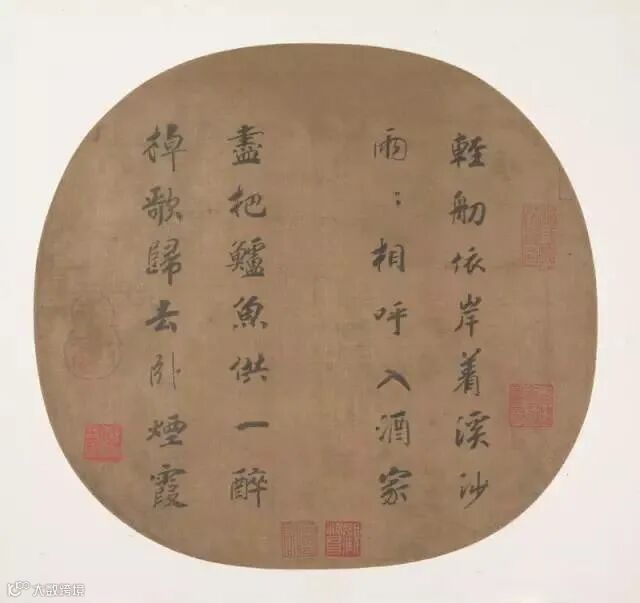 輕舠依岸着溪沙
兩〻相呼入酒家
盡把鱸魚供一醉
棹歌歸去卧煙霞
大数跨境